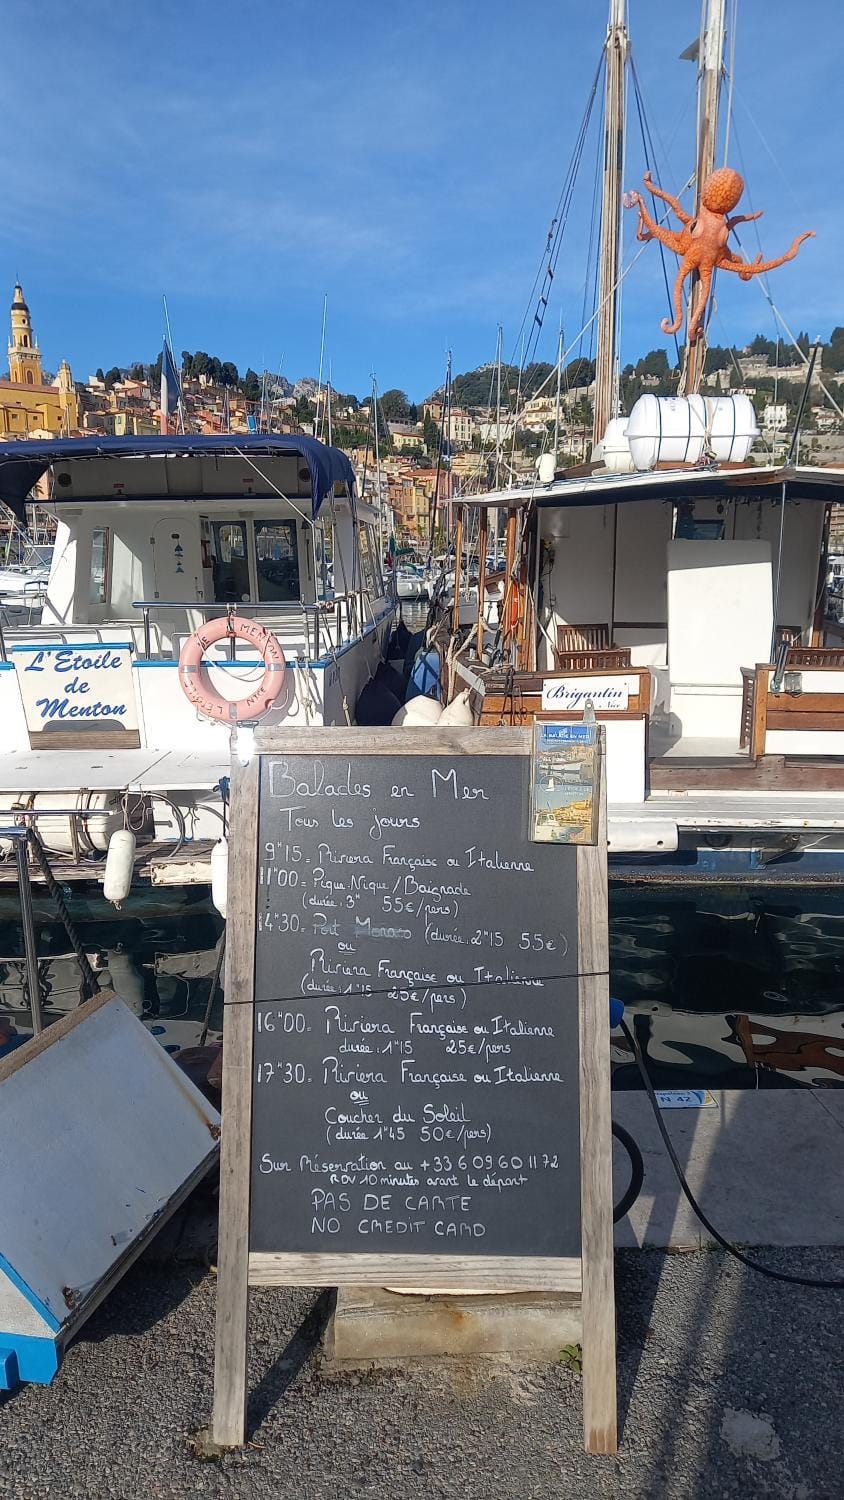 L'Etoile
de
Menton
DE MENTON
Brigantin
Nice
LA BALADE EN MER
Balades en Mer
Tous les jours
9H15= Riviera Française ou Italienne
11H00= Pique-Nique/Baignade
(durée: 3H 55€/pers)
14H30= Port Monaco (durée: 2H15 55€)
ou
Riviera Française ou Italienne
(durée: 1H15 25€/pers)
16H00= Riviera Française ou Italienne
durée: 1H15 25€/pers
17H30= Riviera Française ou Italienne
ou
Coucher du Soleil
(durée 1H45 50€/pers)
Sur Réservation au +33 6 09 60 11 72
RDV 10 minutes avant le départ
PAS DE CARTE
NO CREDIT CARD
N 42